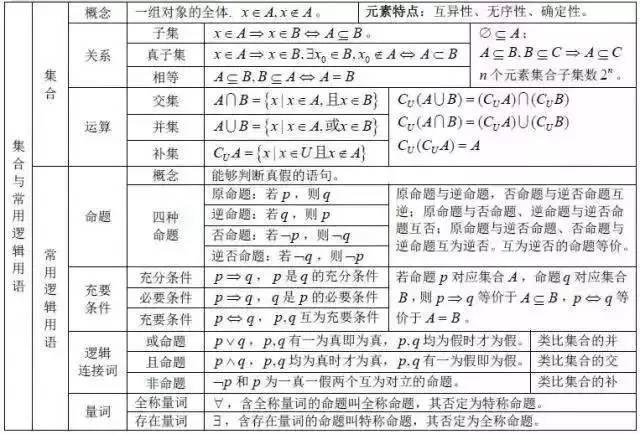 集合与常用逻辑用语
集合
概念
一组对象的全体. x∈A, x∉A 。
元素特点：互异性、无序性、确定性。
关系
子集
x∈A ⇒ x∈B ⇔ A⊆B 。
真子集
x∈A ⇒ x∈B, ∃x₀∈B, x₀∉A ⇔ A⊂B
相等
A⊆B, B⊆A ⇔ A=B
∅⊆A；
A⊆B, B⊆C ⇒ A⊆C
n个元素集合子集数2ⁿ。
运算
交集
A∩B={x|x∈A,且x∈B}
并集
A∪B={x|x∈A,或x∈B}
补集
C_U A={x|x∈U且x∉A}
C_U(A∪B)=(C_U A)∩(C_U B)
C_U(A∩B)=(C_U A)∪(C_U B)
C_U(C_U A)=A
常用逻辑用语
命题
概念
能够判断真假的语句。
四种
命题
原命题：若p，则q
逆命题：若q，则p
否命题：若¬p，则¬q
逆否命题：若¬q，则¬p
原命题与逆命题，否命题与逆否命题互
逆；原命题与否命题、逆命题与逆否命
题互否；原命题与逆否命题、否命题与
逆命题互为逆否。互为逆否的命题等价。
充要
条件
充分条件
p⇒q，p是q的充分条件
必要条件
p⇒q，q是p的必要条件
充要条件
p⇔q，p,q互为充要条件
若命题p对应集合A，命题q对应集合
B，则p⇒q等价于A⊆B，p⇔q等
价于A=B。
逻辑
连接词
或命题
p∨q，p,q有一为真即为真，p,q均为假时才为假。
类比集合的并
且命题
p∧q，p,q均为真时才为真，p,q有一为假即为假。
类比集合的交
非命题
¬p和p为一真一假两个互为对立的命题。
类比集合的补
量词
全称量词
∀，含全称量词的命题叫全称命题，其否定为特称命题。
存在量词
∃，含存在量词的命题叫特称命题，其否定为全称命题。